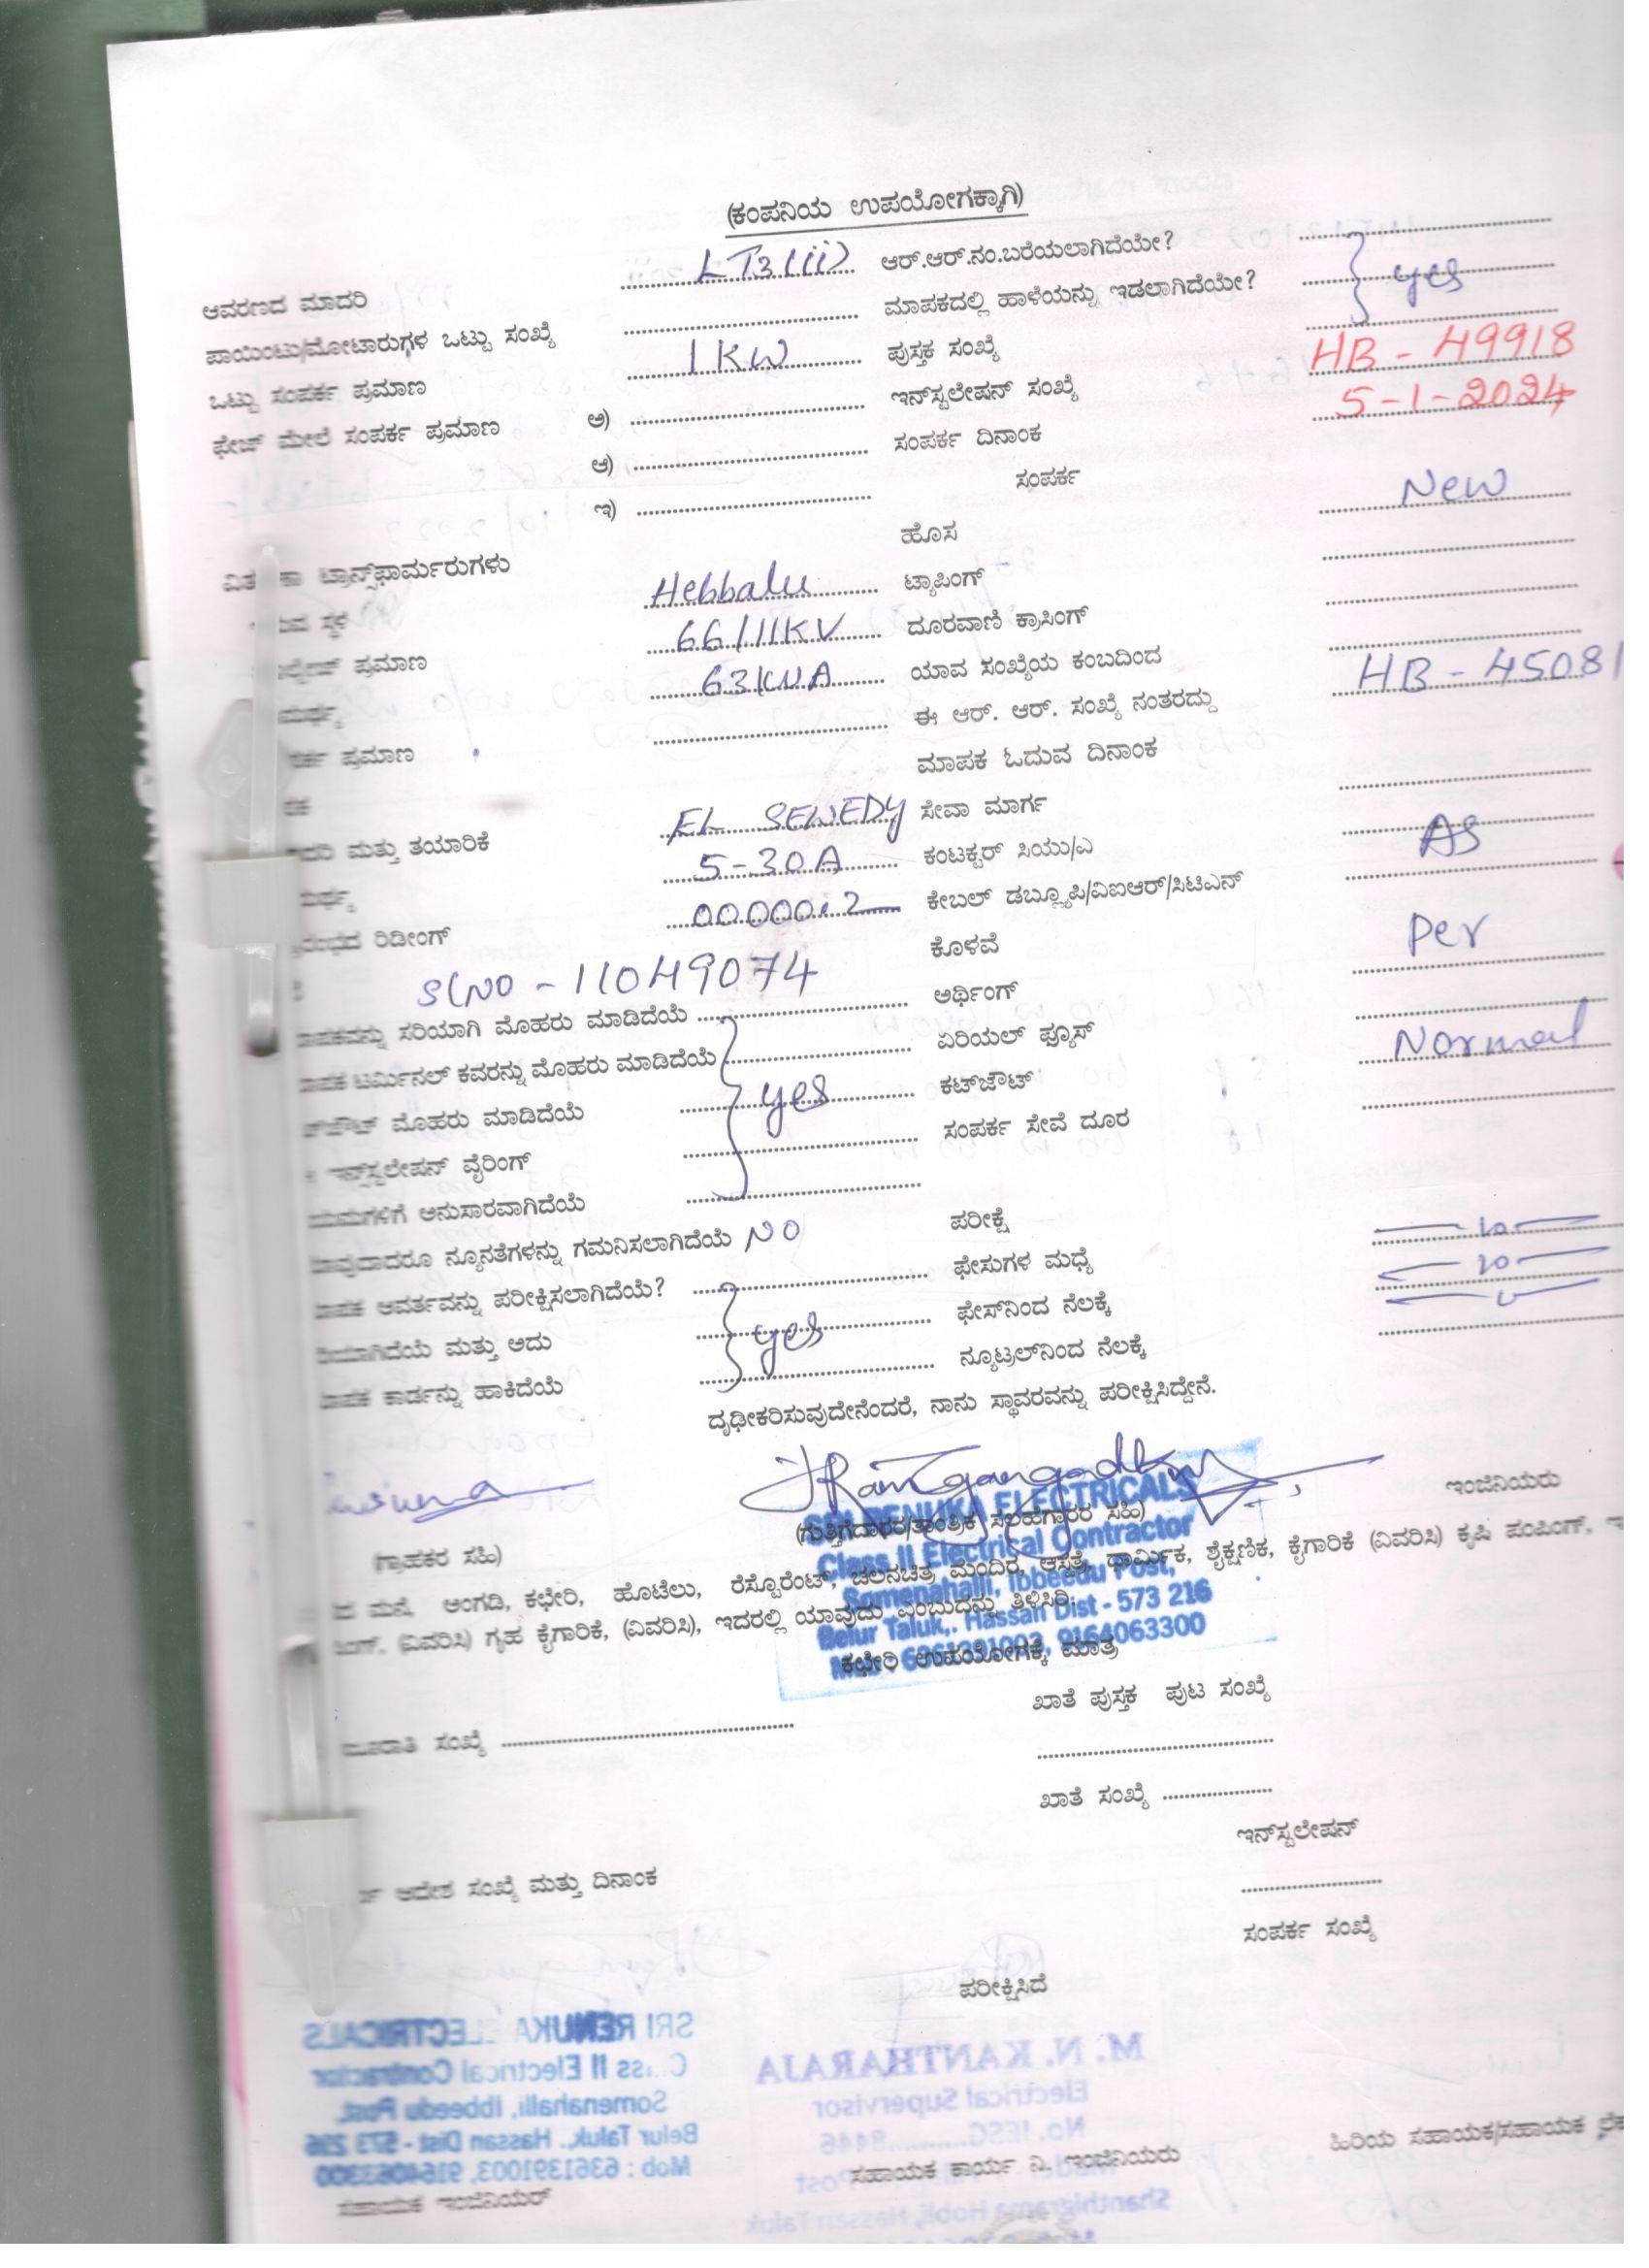 (ಕಂಪನಿಯ ಉಪಯೋಗಕ್ಕಾಗಿ)
ಆವರಣದ ಮಾದರಿ LT3(ii) ಆರ್.ಆರ್.ನಂ.ಬರೆಯಲಾಗಿದೆಯೇ?
ಪಾಯಿಂಟು/ಮೋಟಾರುಗಳ ಒಟ್ಟು ಸಂಖ್ಯೆ ಮಾಪಕದಲ್ಲಿ ಹಾಳೆಯನ್ನು ಇಡಲಾಗಿದೆಯೇ? yes
ಒಟ್ಟು ಸಂಪರ್ಕ ಪ್ರಮಾಣ 1KW ಪುಸ್ತಕ ಸಂಖ್ಯೆ
ಫೇಜ್ ಮೇಲೆ ಸಂಪರ್ಕ ಪ್ರಮಾಣ ಅ) ಇನ್‌ಸ್ಟಲೇಷನ್ ಸಂಖ್ಯೆ HB - 49918
ಆ) ಸಂಪರ್ಕ ದಿನಾಂಕ 5-1-2024
ಇ) ಸಂಪರ್ಕ
ಹೊಸ New
ಟ್ರಾನ್ಸ್‌ಫಾರ್ಮರುಗಳು
ಸ್ಥಳ Hebbalu ಟ್ಯಾಪಿಂಗ್
ಪ್ರಮಾಣ 66/11KV ದೂರವಾಣಿ ಕ್ರಾಸಿಂಗ್
63KVA ಯಾವ ಸಂಖ್ಯೆಯ ಕಂಬದಿಂದ
ಪ್ರಮಾಣ ಈ ಆರ್. ಆರ್. ಸಂಖ್ಯೆ ನಂತರದ್ದು HB - 45081
ಮಾಪಕ ಓದುವ ದಿನಾಂಕ
ಮತ್ತು ತಯಾರಿಕೆ EL SEWEDY ಸೇವಾ ಮಾರ್ಗ
5-30A ಕಂಟಕ್ಟರ್ ಸಿಯು/ಎ AS
ರಿಡೀಂಗ್ 00000.2 ಕೇಬಲ್ ಡಬ್ಲ್ಯೂಪಿ/ವಿಐಆರ್/ಸಿಟಿಎನ್
SLNO - 11049074 ಕೊಳವೆ Per
ಸರಿಯಾಗಿ ಮೊಹರು ಮಾಡಿದೆಯೆ ಅರ್ಥಿಂಗ್
ಟರ್ಮಿನಲ್ ಕವರನ್ನು ಮೊಹರು ಮಾಡಿದೆಯೆ ಏರಿಯಲ್ ಫ್ಯೂಸ್ Normal
ಮೊಹರು ಮಾಡಿದೆಯೆ yes ಕಟ್‌ಔಟ್
ಇನ್ಸ್‌ಸ್ಟಲೇಷನ್ ವೈರಿಂಗ್ ಸಂಪರ್ಕ ಸೇವೆ ದೂರ
ಅನುಸಾರವಾಗಿದೆಯೆ
ನ್ಯೂನತೆಗಳನ್ನು ಗಮನಿಸಲಾಗಿದೆಯೆ NO ಪರೀಕ್ಷೆ
ಆವರ್ತವನ್ನು ಪರೀಕ್ಷಿಸಲಾಗಿದೆಯೆ? ಫೇಸುಗಳ ಮಧ್ಯೆ
ಮತ್ತು ಅದು yes ಫೇಸ್‌ನಿಂದ ನೆಲಕ್ಕೆ
ಕಾರ್ಡನ್ನು ಹಾಕಿದೆಯೆ ನ್ಯೂಟ್ರಲ್‌ನಿಂದ ನೆಲಕ್ಕೆ
ದೃಢೀಕರಿಸುವುದೇನೆಂದರೆ, ನಾನು ಸ್ಥಾವರವನ್ನು ಪರೀಕ್ಷಿಸಿದ್ದೇನೆ.
ಇಂಜಿನಿಯರು
SRI RENUKA ELECTRICALS
(ಗುತ್ತಿಗೆದಾರರ/ತಾಂತ್ರಿಕ ಸಲಹೆಗಾರರ ಸಹಿ)
(ಗ್ರಾಹಕರ ಸಹಿ)
Class II Electrical Contractor
Somenahalli, Ibbeedu Post,
Belur Taluk,. Hassan Dist - 573 216
Mob : 6361391003, 9164063300
ಮನೆ, ಅಂಗಡಿ, ಕಛೇರಿ, ಹೊಟೆಲು, ರೆಸ್ಟೋರೆಂಟ್, ಚಲನಚಿತ್ರ ಮಂದಿರ, ಆಸ್ಪತ್ರೆ, ಧಾರ್ಮಿಕ, ಶೈಕ್ಷಣಿಕ, ಕೈಗಾರಿಕೆ (ವಿವರಿಸಿ) ಕೃಷಿ ಪಂಪಿಂಗ್,
(ವಿವರಿಸಿ) ಗೃಹ ಕೈಗಾರಿಕೆ, (ವಿವರಿಸಿ), ಇದರಲ್ಲಿ ಯಾವುದು ಎಂಬುದನ್ನು ತಿಳಿಸಿರಿ.
ಕಛೇರಿ ಉಪಯೋಗಕ್ಕೆ ಮಾತ್ರ
ಖಾತೆ ಪುಸ್ತಕ ಪುಟ ಸಂಖ್ಯೆ
ಸಂಖ್ಯೆ
ಖಾತೆ ಸಂಖ್ಯೆ
ಇನ್‌ಸ್ಟಲೇಷನ್
ಆದೇಶ ಸಂಖ್ಯೆ ಮತ್ತು ದಿನಾಂಕ
ಸಂಪರ್ಕ ಸಂಖ್ಯೆ
ಪರೀಕ್ಷಿಸಿದೆ
SRI RENUKA ELECTRICALS
Class II Electrical Contractor
Somenahalli, Ibbeedu Post,
Belur Taluk,. Hassan Dist - 573 216
Mob : 6361391003, 9164063300
M. N. KANTHARAJA
Electrical Supervisor
No. IESG..........8446
Post
Shanthigrama Hobli, Hassan Taluk
ಸಹಾಯಕ ಇಂಜಿನಿಯರ್
ಸಹಾಯಕ ಕಾರ್ಯ ನಿ. ಇಂಜಿನಿಯರು
ಹಿರಿಯ ಸಹಾಯಕ/ಸಹಾಯಕ